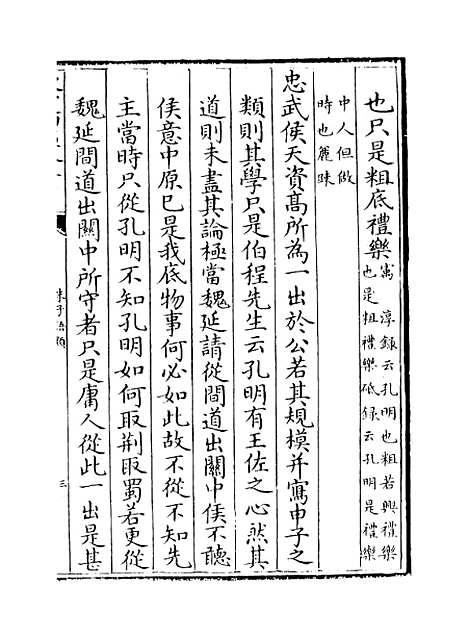 也只是粗底禮樂
寓 淳録云孔明也粗若興禮樂
也是粗禮樂砥録云孔明是禮樂
中人但做
時也麄疎
忠武侯天資髙所為一出於公若其規模并寫申子之
類則其學只是伯程先生云孔明有王佐之心然其
道則未盡其論極當魏延請從間道出關中侯不聽
侯意中原已是我底物事何必如此故不從不知先
主當時只從孔明不知孔明如何取荆取蜀若更從
魏延間道出關中所守者只是庸人從此一出是甚
朱子語類
三